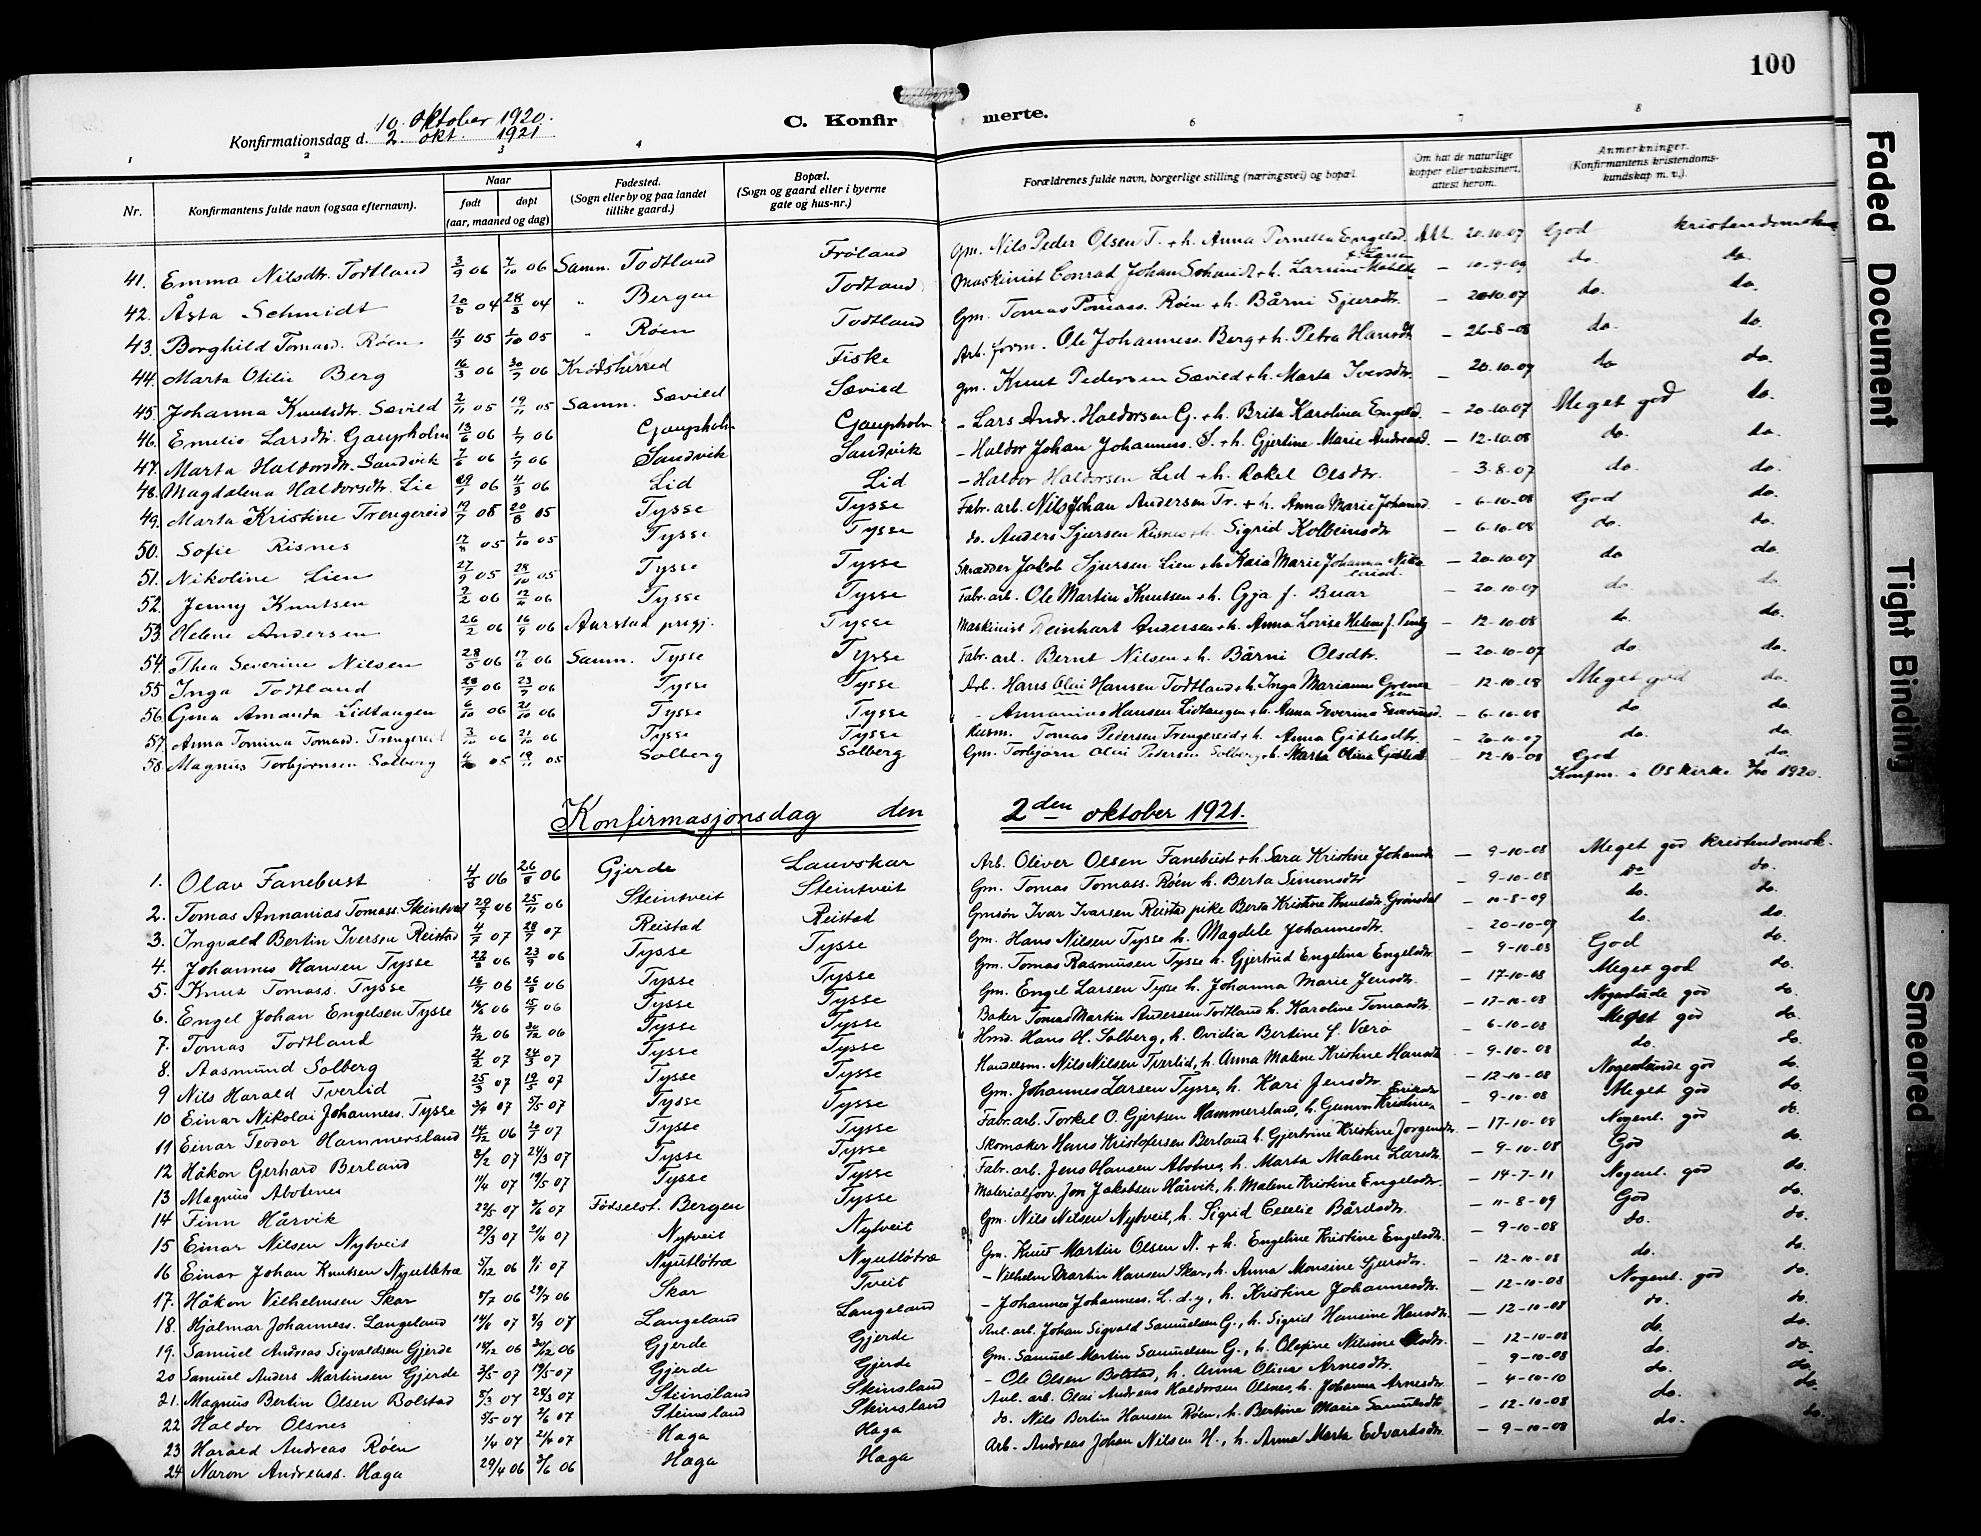 100
Konfirmationsdag d. 10. oktober 1920.
2. okt. 1921
C. Konfirmerte.
1 2 3 4 6 7 8
Nr. Konfirmantens fulde navn (ogsaa efternavn). Naar født døpt (aar, maaned og dag) Fødested. (Sogn eller by og paa landet tillike gaard.) Bopæl. (Sogn og gaard eller i byerne gate og hus-nr.) Forældrenes fulde navn, borgerlige stilling (næringsvei) og bopæl. Om hat de naturlige kopper eller vaksinert, attest herom. Anmerkninger. (Konfirmantens kristendomskundskap m. v.).
41. Emma Nilsdtr. Todtland 3/9 06 7/10 06 Samn. Todtland Frøland Gm. Nils Peder Olsen T. + h. Anna Pernella Engelsd. Att. 20.10.07 God
42. Åsta Schmidt 20/8 04 28/8 04 " Bergen Todtland Maskinist Conrad Johan Schmidt + h. – 10-9-09 do. do.
43. Borghild Tomasd. Røen 11/9 05 1/10 05 " Røen Todtland Gm. Tomas Tomass. Røen + h. Bårni Sjursdtr. – 20.10.07 do. do.
44. Marta Otilie Berg 16/3 06 30/9 06 Krødsherred Fiske Arb. form. Ole Johanness. Berg + h. Petra Hansdt – 26-8-08 do. do.
45. Johanna Knutsdtr. Sævild 2/11 05 19/11 05 Samn. Sævild Sævild Gm. Knut Pedersen Sævild + h. Marta Iversdtr. – 20.10.07 do do.
46. Emelie Larsdtr. Gaupholm 13/6 06 1/7 06 Gaupholm Gaupholm – Lars Andr. Haldorsen G. + h. Brita Karolina Engelsd. – 20-10-07 Meget god do.
47. Marta Haldorsdtr. Sandvik 7/6 06 1/7 06 Sandvik Sandvik – Haldor Johan Johanness. S. + h. Gjertine Marie Andreasd. – 12-10.08 do. do.
48. Magdalena Haldorsdtr. Lie 06 4/3 06 Lid Lid – Haldor Haldorsen Lid + h. Rakel Olsdtr. – 3.8.07 do. do.
49. Marta Kristine Trengereid 19/7 05 20/8 05 Tysse Tysse Fabr. arb. Nils Johan Andersen Tr. + h. Anna Marie Johannsd. – 6-10-08 God do.
50. Sofie Risnes 05 1/10 05 Tysse Tysse do. Anders Sjursen Risnes + h. Sigrid Kolbeinsdtr – 6.10.08 do. do.
51. Nikoline Lien 27/9 05 28/10 05 Tysse Tysse Skrædder Jakob Sjursen Lien + h. Kaia Marie Johanna – 20.10.07 do do.
52. Jenny Knutsen 2/2 06 12/4 06 Tysse Tysse Fabr. arb. Ole Martin Knutsen + h. Gjja f. Buar – 20.10.07 do. do.
53. Helene Andersen 26/2 06 16/9 06 Aurstad prgj. Tysse Maskinist Reinhart Andersen + h. Anna Lovise Helene f. – 12-10.08 do. do.
54. Thea Severine Nilsen 28/5 06 17/6 06 Samn. Tysse Tysse Fabr. arb. Bernt Nilsen + h. Bårni Olsdtr. – 20-10-07 do. do.
55. Inga Todtland 28/7 06 23/9 06 Tysse Tysse Arb. Hans Olai Hansen Todtland + h. Inga Marianne – 12-10-08 Meget god do.
56. Gina Amanda Lidtangen 6/10 06 21/10 06 Tysse Tysse – Annanias Hansen Lidtangen + h. Anna Severina – 6-10-08 do do.
57. Anna Tomina Tomasd. Trengereid 3/10 06 21/10 06 Tysse Tysse Husm. Tomas Pedersen Trengereid + h. Anna Gitlesdtr. – 20-10-07 do. do.
58. Magnus Torbjørnsen Solberg 05 19/11 05 Solberg Solberg Gm. Torbjørn Olai Pedersen Solberg + h. Marta Olina Gitlesd – 12-10-08 God do.
Konfm. i Os kirke 3/10 1920.
Konfirmasjonsdag den 2den oktober 1921.
1. Olav Fanebust 4/8 06 26/8 06 Gjerde Lauvskar Arb. Oliver Olsen Fanebust + h. Sara Kristine Johansd – 9-10-08 Meget god kristendomsk.
2. Tomas Annanias Tomass. Steintveit 29/9 06 25/11 06 Steintveit Steintveit Gm. Tomas Tomass. Røen h. Berta Simensdtr – 9-10-08 do do.
3. Ingvald Bertin Iversen Reistad 4/7 07 28/7 07 Reistad Reistad Gmsøn Ivar Ivarsen Reistad pike Berta Kristine Knutsdt. Grønsdal – 10-8-09 do. do.
4. Johannes Hansen Tysse 22/8 06 23/9 06 Tysse Tysse Gm. Hans Nilsen Tysse h. Magdele Johannesdtr. – 20-10-07 do. do.
5. Knut Tomass. Tysse 06 26/8 06 Tysse Tysse Gm. Tomas Rasmussen Tysse h. Gjertrud Engelina Engelsdtr. – 9-10-08 God do.
6. Engel Johan Engelsen Tysse 06 15/7 06 Tysse Tysse Gm. Engel Larsen Tysse h. Johanna Marie Jensdtr. – 17-10-08 Meget god do.
7. Tomas Todtland 06 06 Tysse Tysse Baker Tomas Martin Andersen Todtland h. Karoline Tomasdtr – 17-10-08 Nogenlunde god do.
8. Aasmund Solberg 21/2 07 24/3 07 Tysse Tysse Hmd. Hans H. Solberg, h. Ovidia Bertine f. Værø – 6-10-08 Meget god do.
9 Nils Harald Tverlid 25/3 07 19/5 07 Tysse Tysse Handelsm. Nils Nilsen Tverlid, h. Anna Malene Kristine Hansdt – 9-10-08 do. do.
10 Einar Nikolai Johanness. Tysse 07 5/5 07 Tysse Tysse Gm. Johannes Larsen Tysse, h. Kari Jensdtr – 12-10-08 Nogenlunde god do.
11 Einar Teodor Hammersland 14/12 06 20/1 07 Tysse Tysse Fabr. arb. Torkel O. Gjertsen Hammersland, h. Gunvor Kristine Eriksdtr – 9-10-08 Meget god do.
12 Håkon Gerhard Berland 8/2 07 24/3 07 Tysse Tysse Skomaker Hans Kristofersen Berland h. Gjertrine Kristine Jørgensdtr. – 17-10-08 Nogenl. god do.
13 Magnus Abotnes 11/4 07 19/5 07 Tysse Tysse Fabr. arb. Jens Hansen Abotnes, h. Marta Malene Larsdtr – 9-10-08 God do.
14 Finn Hårvik 22/5 07 07 Fødselst. Bergen Tysse Materialforv. Jon Jakobsen Hårvik, h. Malene Kristine Engelsdtr. – 14-7-11 Nogenl. god do.
15 Einar Nilsen Nytveit 29/3 07 21/4 07 Nytveit Nytveit Gm. Nils Nilsen Nytveit, h. Sigrid Cecelie Bårdsdtr. – 11-8-09 God do.
16 Einar Johan Knutsen Nyutletræ 5/12 06 1/1 07 Nyutløtræ Nyutløtræ Gm. Knut Martin Olsen N. + h. Engeline Kristine Engelsdtr. – 9-10-08 do. do.
17. Håkon Vilhelmsen Skar 8/7 06 29/7 06 Skar Tveit – Vilhelm Martin Hansen Skar, h. Anna Monsine Sjursdtr. – 12-10-08 do. do.
18. Hjalmar Johanness. Langeland 07 8/9 07 Langeland Langeland – Johannes Johanness. L. d.y, h. Kristine Johannesdtr. – 12-10-08 Nogenl. god do.
19. Samuel Andreas Sigvaldsen Gjerde 06 30/12 06 Gjerde Gjerde Anl. arb. Johan Sigvald Samuelsen G., h. Sigrid Hansine Hansdtr. – 12-10-08 do. do.
20 Samuel Anders Martinsen Gjerde 3/5 07 19/5 07 Gjerde Gjerde Gm. Samuel Martin Samuelsen G., h. Olefine Nilsine – 12-10-08 do. do.
21. Magnus Bertin Olsen Bolstad 8/3 07 28/3 07 Steinsland Steinsland – Ole Olsen Bolstad, h. Anna Olina Arnesdtr. – 9-10-08 do. do.
22 Haldor Olsnes 5/5 07 2/6 07 Steinsland Steinsland Anl. arb. Olai Andreas Haldorsen Olsnes, h. Johanna Arnesdtr – 4-10-10 do. do.
23 Harald Andreas Røen 1/4 07 21/4 07 Haga Haga do. Nils Bertin Hansen Røen, h. Bertine Marie Samuelsdt – 12-10-08 do. do.
24 Naron Andreass. Haga 29/4 06 3/6 06 Haga Haga Arb. Andreas Johan Nilsen H., h. Anna Marta Edvardsdtr. – 9-10-08 do. do.
Faded Document
Tight Binding
Smeared